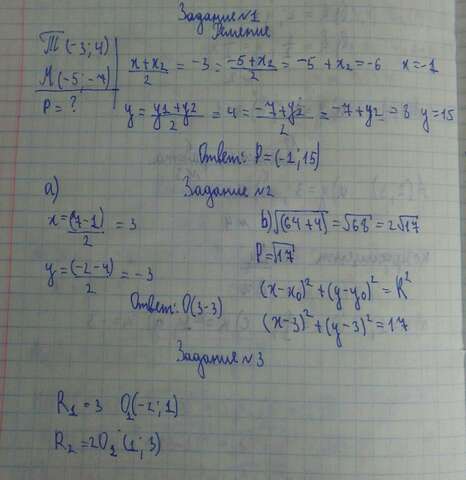 Задание №1
Решение
T(-3;4)
M(-5;-7)
P=?
x+x₂/2 = -3 = -5+x₂/2 = -5+x₂=-6 x=-1
y=y₁+y₂/2 = 4 = -7+y₂/2 = -7+y₂=8 y=15
Ответ: P=(-1;15)
Задание №2
а)
x=(7-1)/2=3
y=(-2-4)/2=-3
Ответ: O(3-3)
b)√(64+4)=√68=2√17
P=√17
(x-x₀)²+(y-y₀)²=R²
(x-3)²+(y-3)²=17
Задание №3
R₁=3 O₁(-2;1)
R₂=2O₂(1;3)